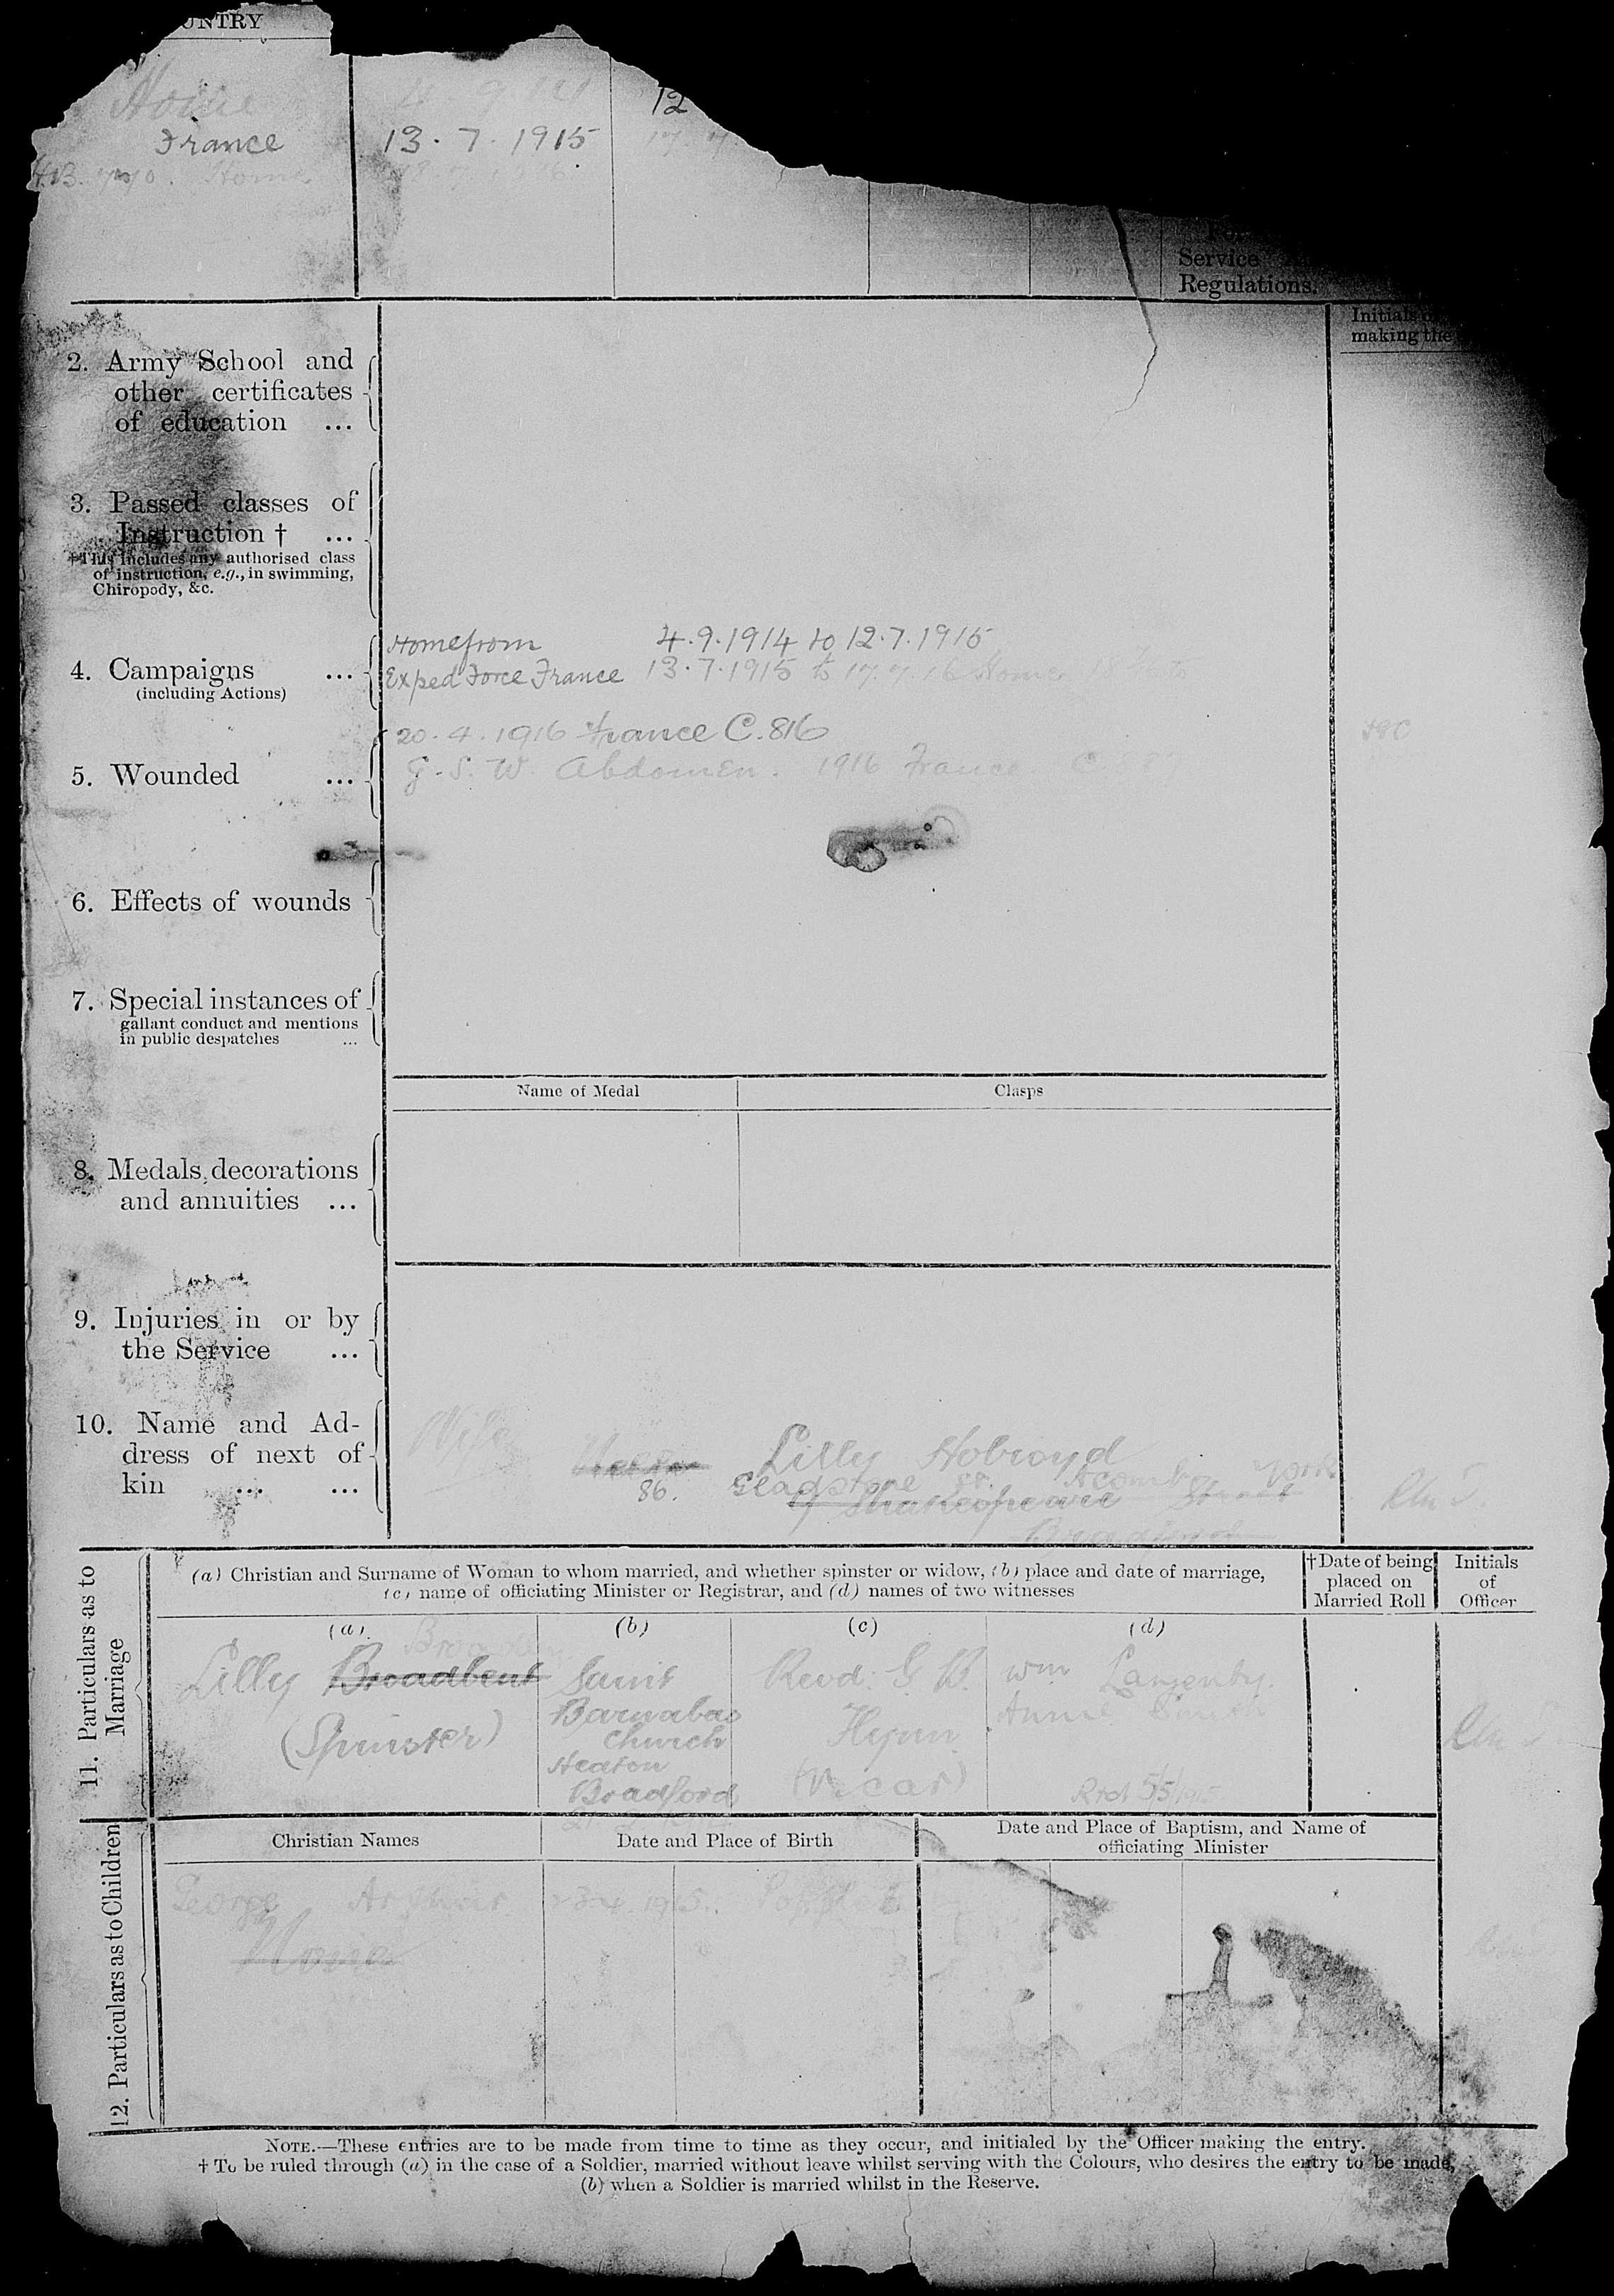 Home 4 9 12
France 13 . 7 . 1915 17 7
Home
Service
Regulations.
Initials
making the
2. Army School and
other certificates
of education ...
3. Passed classes of
Instruction † ...
† This includes any authorised class
of instruction, e.g., in swimming,
Chiropody, &c.
Home from 4.9.1914 to 12.7.1915
4. Campaigns ... Exped Force France 13.7.1915 to 17.7.16 Home to
(including Actions)
20.4.1916 France C.816
5. Wounded ... G.S.W. Abdomen. 1916 France C.
6. Effects of wounds
7. Special instances of
gallant conduct and mentions
in public despatches ...
Name of Medal Clasps
8. Medals, decorations
and annuities ...
9. Injuries in or by
the Service ...
10. Name and Ad-
dress of next of
kin ... ...
Wife Lilly Holroyd
86. Gladstone St. Acomb York
9 Shakespeare Street
Bradford
11. Particulars as to
Marriage
(a) Christian and Surname of Woman to whom married, and whether spinster or widow, (b) place and date of marriage,
(c) name of officiating Minister or Registrar, and (d) names of two witnesses
† Date of being
placed on
Married Roll
Initials
of
Officer
(a) (b) (c) (d)
Lilly Broadbent
(Spinster)
Saint
Barnabas
Church
Heaton
Bradford
Revd. G. B.
Flynn
(Vicar)
Wm Lazenby.
Annie Smith
5/5/1915
12. Particulars as to Children
Christian Names Date and Place of Birth Date and Place of Baptism, and Name of
officiating Minister
George Arthur 23.4.1915.
None
NOTE.—These entries are to be made from time to time as they occur, and initialed by the Officer making the entry.
† To be ruled through (a) in the case of a Soldier, married without leave whilst serving with the Colours, who desires the entry to be made,
(b) when a Soldier is married whilst in the Reserve.